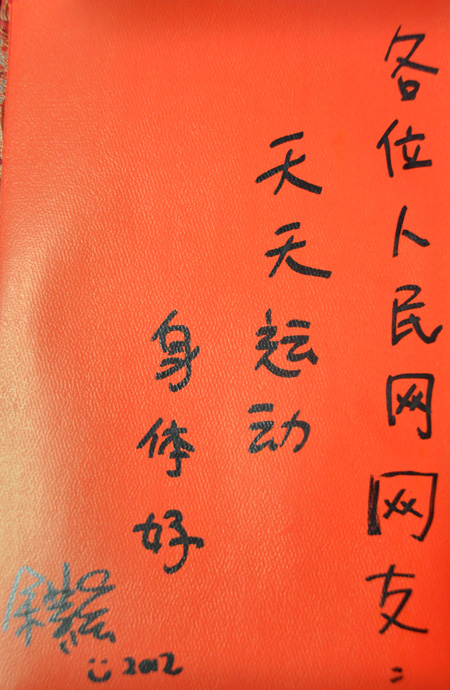 各位人民网网友：
天天运动
身体好
2012